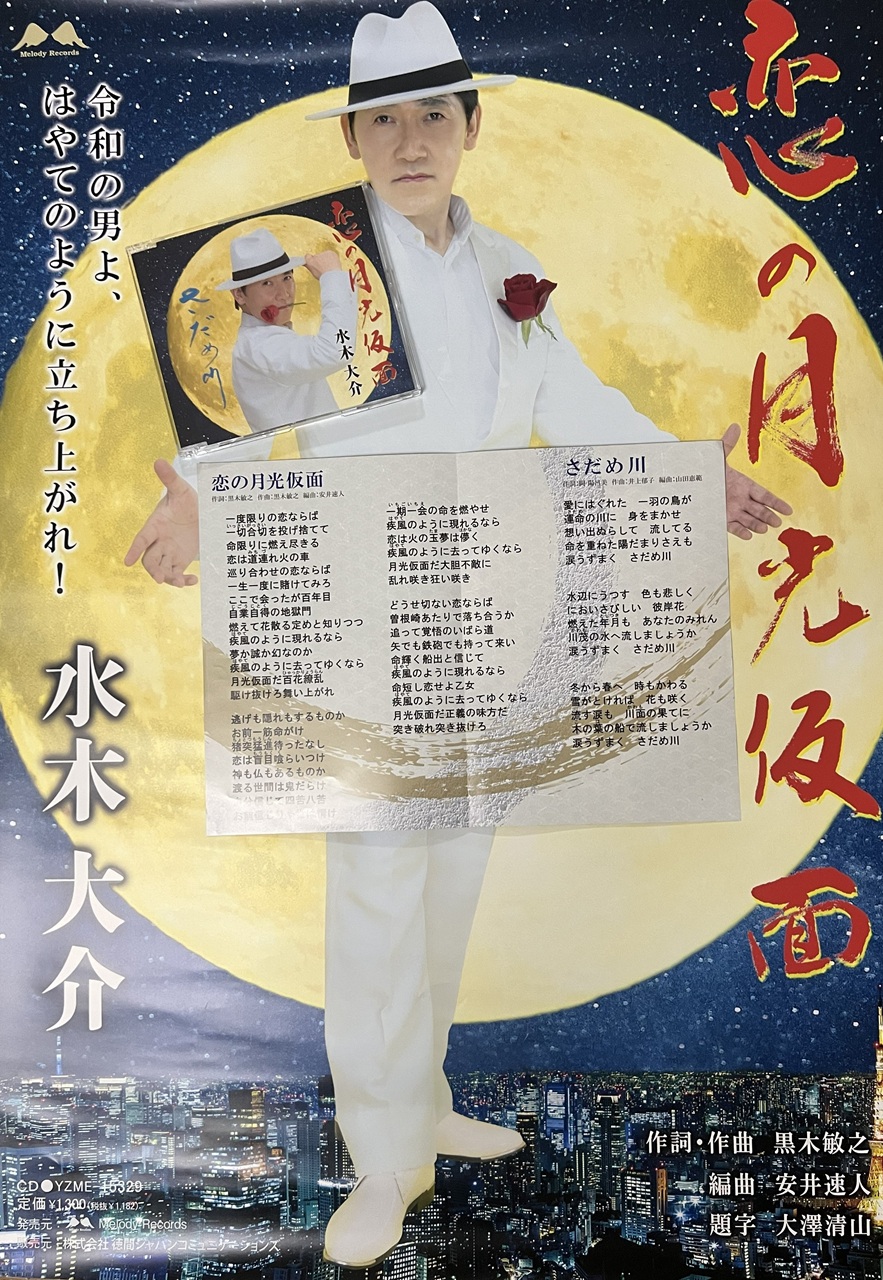 Melody Records
令和の男よ、
はやてのように立ち上がれ！
水木大介
恋の月光仮面
恋の月光仮面
さだめ川
水木大介
恋の月光仮面
作詞：黒木敏之 作曲：黒木敏之 編曲：安井速人
一度限りの恋ならば
一切合切を投げ捨てて
命限りに燃え尽きる
恋は道連れ火の車
巡り合わせの恋ならば
一生一度に賭けてみろ
ここで会ったが百年目
自業自得の地獄門
燃えて花散る定めと知りつつ
疾風のように現れるなら
夢か誠か幻なのか
疾風のように去ってゆくなら
月光仮面だ百花繚乱
駆け抜けろ舞い上がれ
逃げも隠れもするものか
お前一筋命がけ
猪突猛進待ったなし
恋は盲目喰らいつけ
神も仏もあるものか
渡る世間は鬼だらけ
信じて四苦八苦
一期一会の命を燃やせ
疾風のように現れるなら
恋は火の玉夢は儚く
疾風のように去ってゆくなら
月光仮面だ大胆不敵に
乱れ咲き狂い咲き
どうせ切ない恋ならば
曽根崎あたりで落ち合うか
追って覚悟のいばら道
矢でも鉄砲でも持って来い
命輝く船出と信じて
疾風のように現れるなら
命短し恋せよ乙女
疾風のように去ってゆくなら
月光仮面だ正義の味方だ
突き破れ突き抜けろ
さだめ川
作曲：井上郁子 編曲：山田恵範
愛にはぐれた 一羽の鳥が
運命の川に 身をまかせ
想い出ぬらして 流してる
命を重ねた陽だまりさえも
涙うずまく さだめ川
水辺にうつす 色も悲しく
においさびしい 彼岸花
燃えた年月も あなたのみれん
川茂の水へ流しましょうか
涙うずまく さだめ川
冬から春へ 時もかわる
雪がとければ 花も咲く
流す涙も 川面の果てに
木の葉の船で流しましょうか
涙うずまく さだめ川
CD●YZME-15329
定価 ¥1,300(税抜¥1,182)
発売元： Melody Records
販売元：株式会社 徳間ジャパンコミュニケーションズ
作詞・作曲 黒木敏之
編曲 安井速人
題字 大澤清山